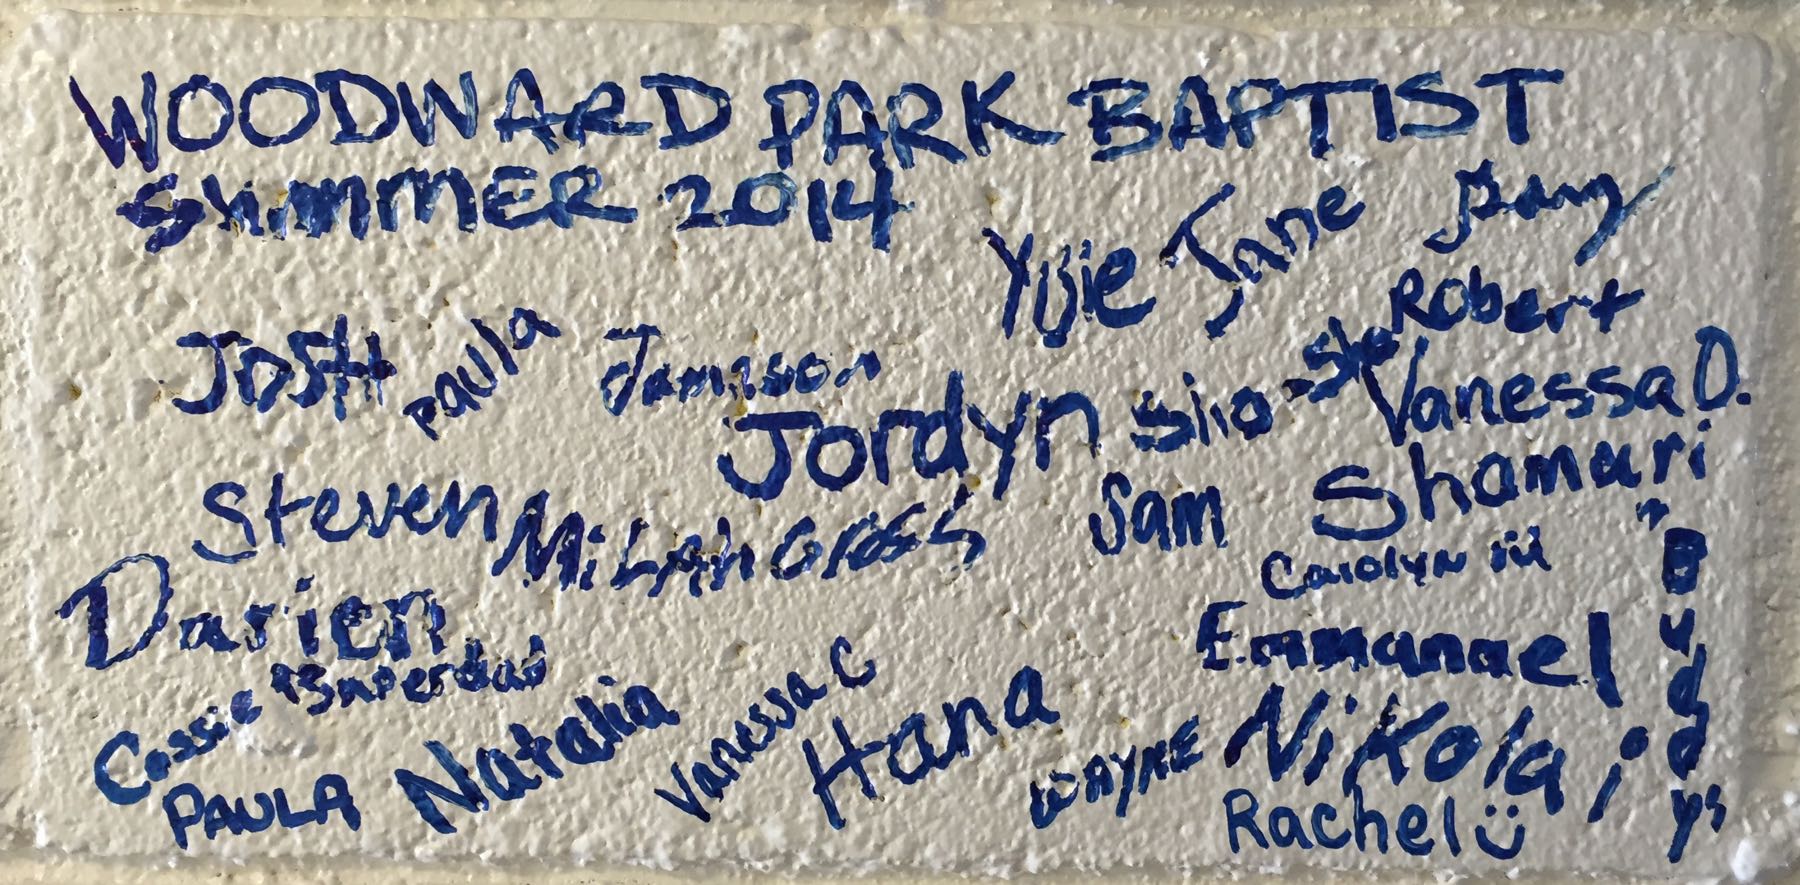 WOODWARD PARK BAPTIST
SUMMER 2014
Yujie Jane
Robert
JOSH
Paula
Jamison
Jordyn
Vanessa D.
Steven
MiLAH GROSS
Sam
Shamari
Carolyn
Darien
Emmanuel
Cassie
Natalia
Vanessa C
Hana
WAYNE
Nikolai
PAULA
Rachel ü